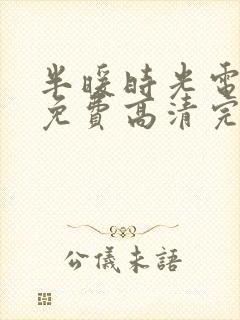 半暖時光電
免費高清完
公儀未語